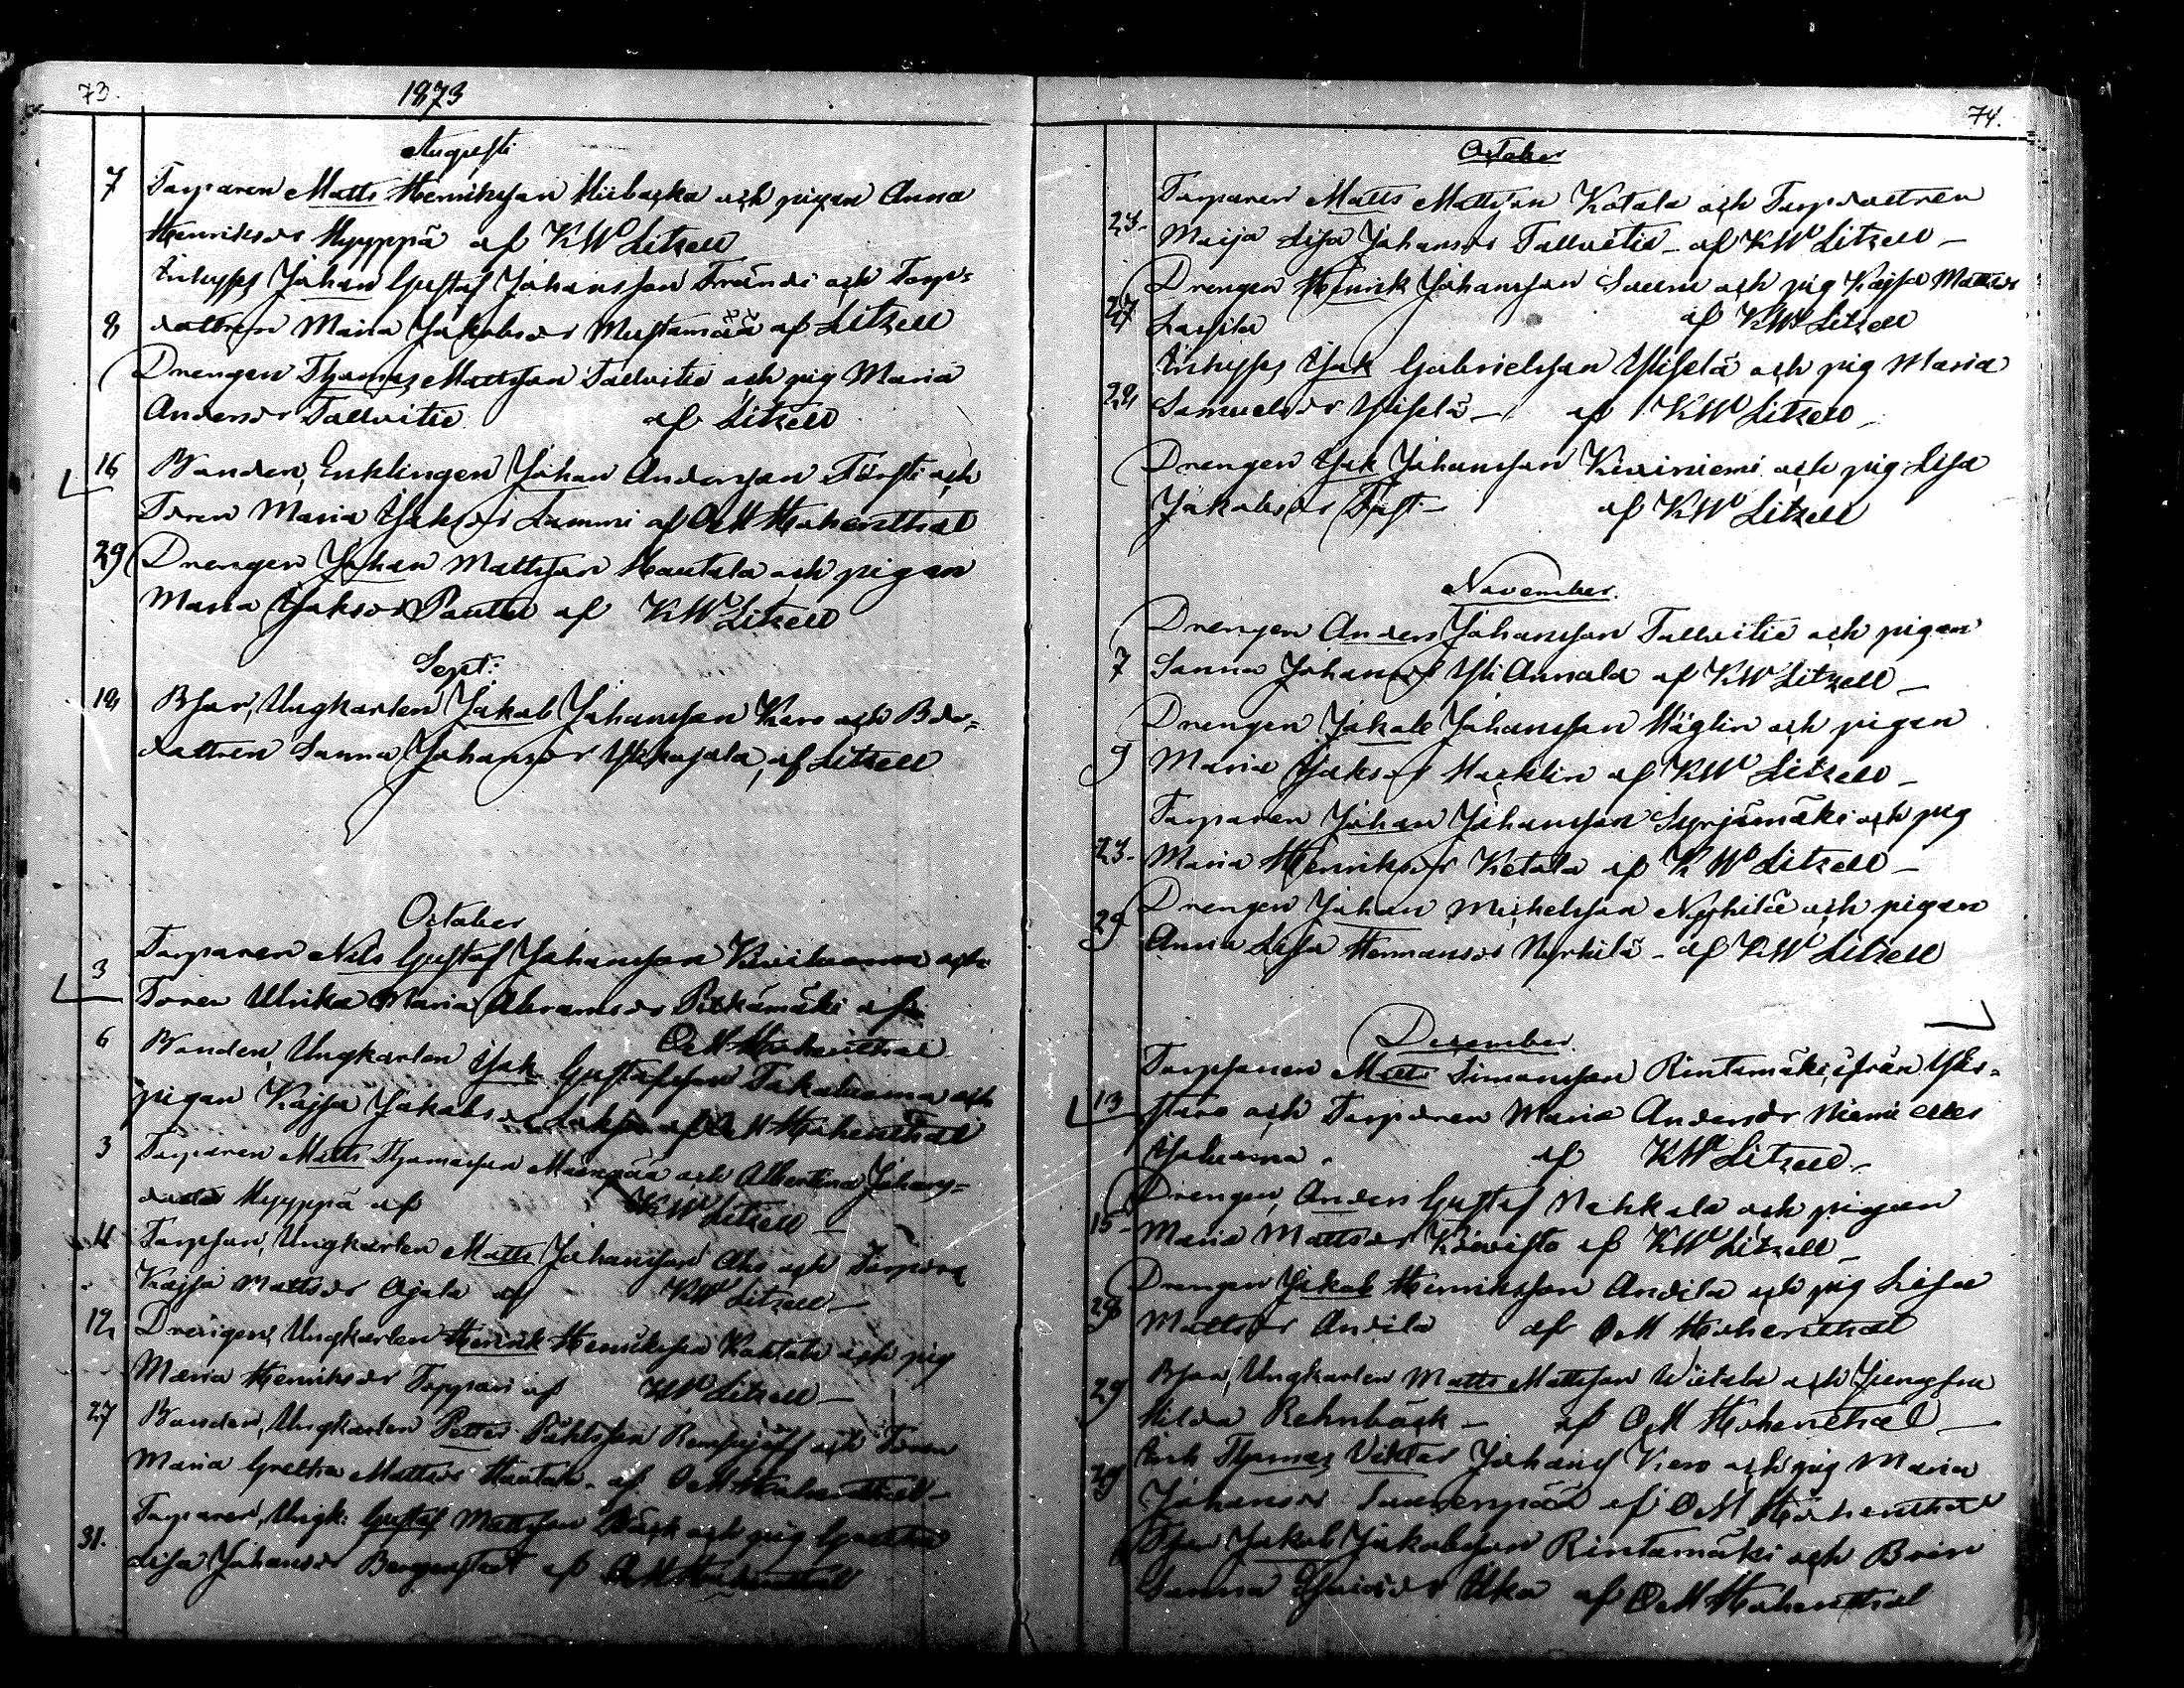 73.
1873
Augusti
7 Torparen Matts Henriksson Miibacka och pigan Anna
Henriksdr Hyyppä af KW Litzell
Inhyses Johan Gustaf Johansson Frändi och Torp-
8 dattren Maria Jakobsdr Mustamää af Litzell
Drengen Thomas Mattsson Tallvitie och pig Maria
Andersdr Tallvitie af Litzell
16 Bonden, Enklingen Johan Andersson Törsti och
Toren Maria Jaksdr Lammi af OM Hohenthal
29 Drengen Johan Mattsson Hautala och pigan
Maria Jaksdr Pantti af KW Litzell
Sept:
12 Bson, Ungkarlen Jakob Johansson Kero och Bdr-
dattren Sanna Johansdr Ylikojala, af Litzell
October
3 Torparen Nils Gustaf Johansson Kiviluoma och
Toren Ulrika Maria Abramsdr Pitkämäki af
OM Hohenthal
6 Bonden, Ungkarlen Isak Gustafsson Takaluoma och
pigan Kajsa Jakobsdr af OM Hohenthal
3 Torparen Matts Thomasson Mäenpää och Albertina Johans-
Hyyppä af KW Litzell
4 Torpson, Ungkarlen Matts Johansson Aho och Torpdra
Kajsa Mattsdr Ojala af KW Litzell
12 Drengen, Ungkarlen Henrik Henriksson Kaktala och pig
Maria Henriksdr Toppari af KW Litzell
27 Bonden, Ungkarlen Petter Påhlsson och Toren
Maria Gretha Mattsdr Hautala af OM Hohenthal
31. Torparen, Ungk: Gustaf Mattsson Bäck och pig Gretha
Lisa Johansdr Bergqvist af OM Hohenthal
74.
October
Torparen Matts Mattsson Kotala och Torpdottren
23. Maija Lisa Johansdr Tallvitie af KW Litzell
Drengen Henrik Johansson Saari och pig Kajsa Mattsdr
27 Lassila af KW Litzell
Inhyses Isak Gabrielsson Yliselä och pig Maria
28 Samuelsdr Yliselä af KW Litzell
Drengen Isak Johansson Kiviniemi och pig Lisa
Jakobsdr Tast af KW Litzell
November.
Drengen Anders Johansson Tallvitie och pigan
7 Sanna Johansdr Yli Annala af KW Litzell
Drengen Jakob Johansson Häglin och pigan
9 Maria Jaksdr Harklin af KW Litzell
Torparen Johan Johansson Syrjämäki och pig
23. Maria Henriksdr Ketala af KW Litzell
29 Drengen Johan Michelsson Nyrhilä och pigan
Anna Lisa Hermansdr Nyrhilä af KW Litzell
December.
Torpsonen Matts Simonsson Rintamäki, ifrån Ylis-
13 staro och Torpdren Maria Andersdr Niemi eller
Isoluoma af KW Litzell
Drengen, Anders Gustaf Nahkala och pigan
15 Maria Mattsdr Koivisto af KW Litzell
Drengen Jakob Henriksson Andila och pig Lisa
28 Mattsdr Andila af OM Hohenthal
29 Bson, Ungkarlen Matts Mattsson Wiitala och Jungfru
Hilda Rehnbäck af OM Hohenthal
29 Thomas Viktor Johans Kero och pig Maria
Johansdr Saarenpää af OM Hohenthal
Jakob Jakobsson Rintamäki och
Sanna af OM Hohenthal